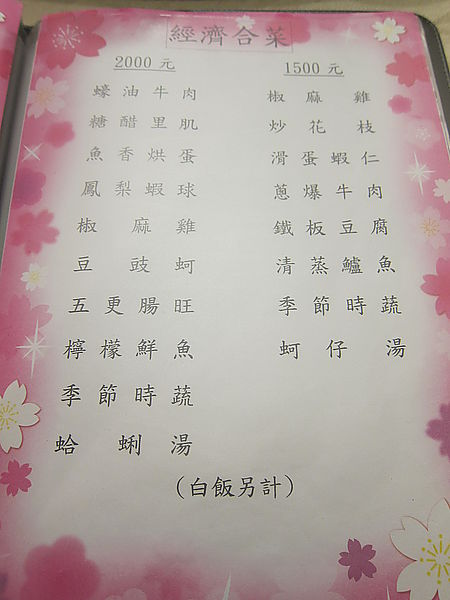 經濟合菜
2000 元
蠔油牛肉
糖醋里肌
魚香烘蛋
鳳梨蝦球
椒麻雞
豆豉蚵
五更腸旺
檸檬鮮魚
季節時蔬
蛤蜊湯
1500 元
椒麻雞
炒花枝
滑蛋蝦仁
蔥爆牛肉
鐵板豆腐
清蒸鱸魚
季節時蔬
蚵仔湯
(白飯另計)